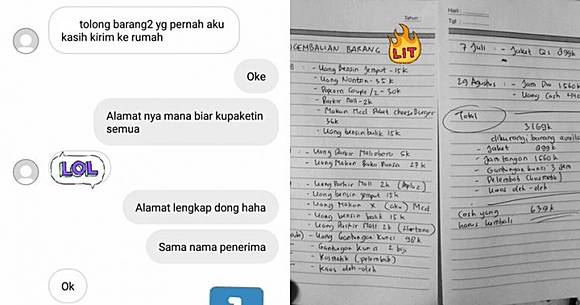 tolong barang2 yg pernah aku
kasih kirim ke rumah
Oke
Alamat nya mana biar kupaketin
semua
LOL
Alamat lengkap dong haha
Sama nama penerima
Ok
Tahun:
GEMBALIAN BARANG
LIT
- Uang Bensin Jemput - 15k
- Uang Nonton - 35k
- Popcorn Couple /2 - 30k
- Parkir Mall - 2k
- Makan Mcd Paket cheese Burger
36k
- Uang bensin balik 15k
- Uang Parkir Malioboro 5k
- Uang Makan Baku 27k
- Uang Parkir Mall 2k
- Uang bensin jemput 15k
- Uang Makan X (aku) Mcd
- Uang bensin balik 15k
- Uang Parkir Mall 2k (Hartono)
- Uang Gantungan Kunci 98k
- Gantungan Kunci 2 biji
- Kosmetik (pelembab)
- Kaos oleh-oleh
Hari:
Tgl:
7 Juli : - Jaket 899k
29 Agustus : - Jam 1560k
- Uang Cash
Total
3169k
dikurangi barang
- Jaket 899k
- Jam tangan 1560k
- Gantungan kunci 3
- Pelembab (kosmetik)
- Kaos oleh-oleh
Cash yang 639k
harus kembali